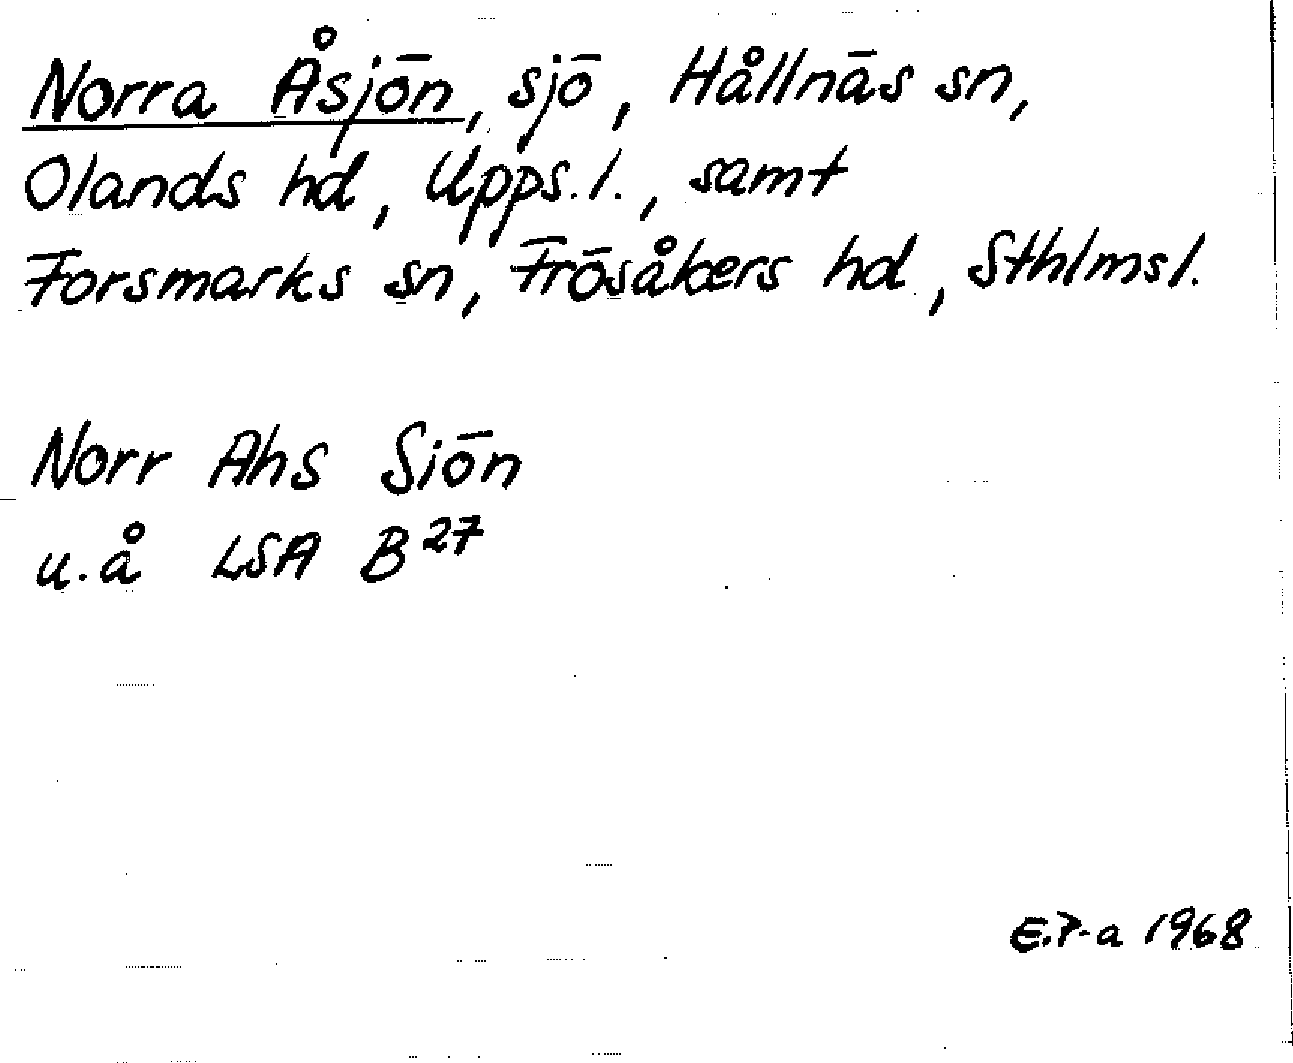 Norra Åsjön, sjö, Hållnäs sn,
Olands hd, Upps.l., samt
Forsmarks sn, Frösåkers hd, Sthlmsl.
Norr Ahs Siön
u.å LSA B27
E.P-a 1968